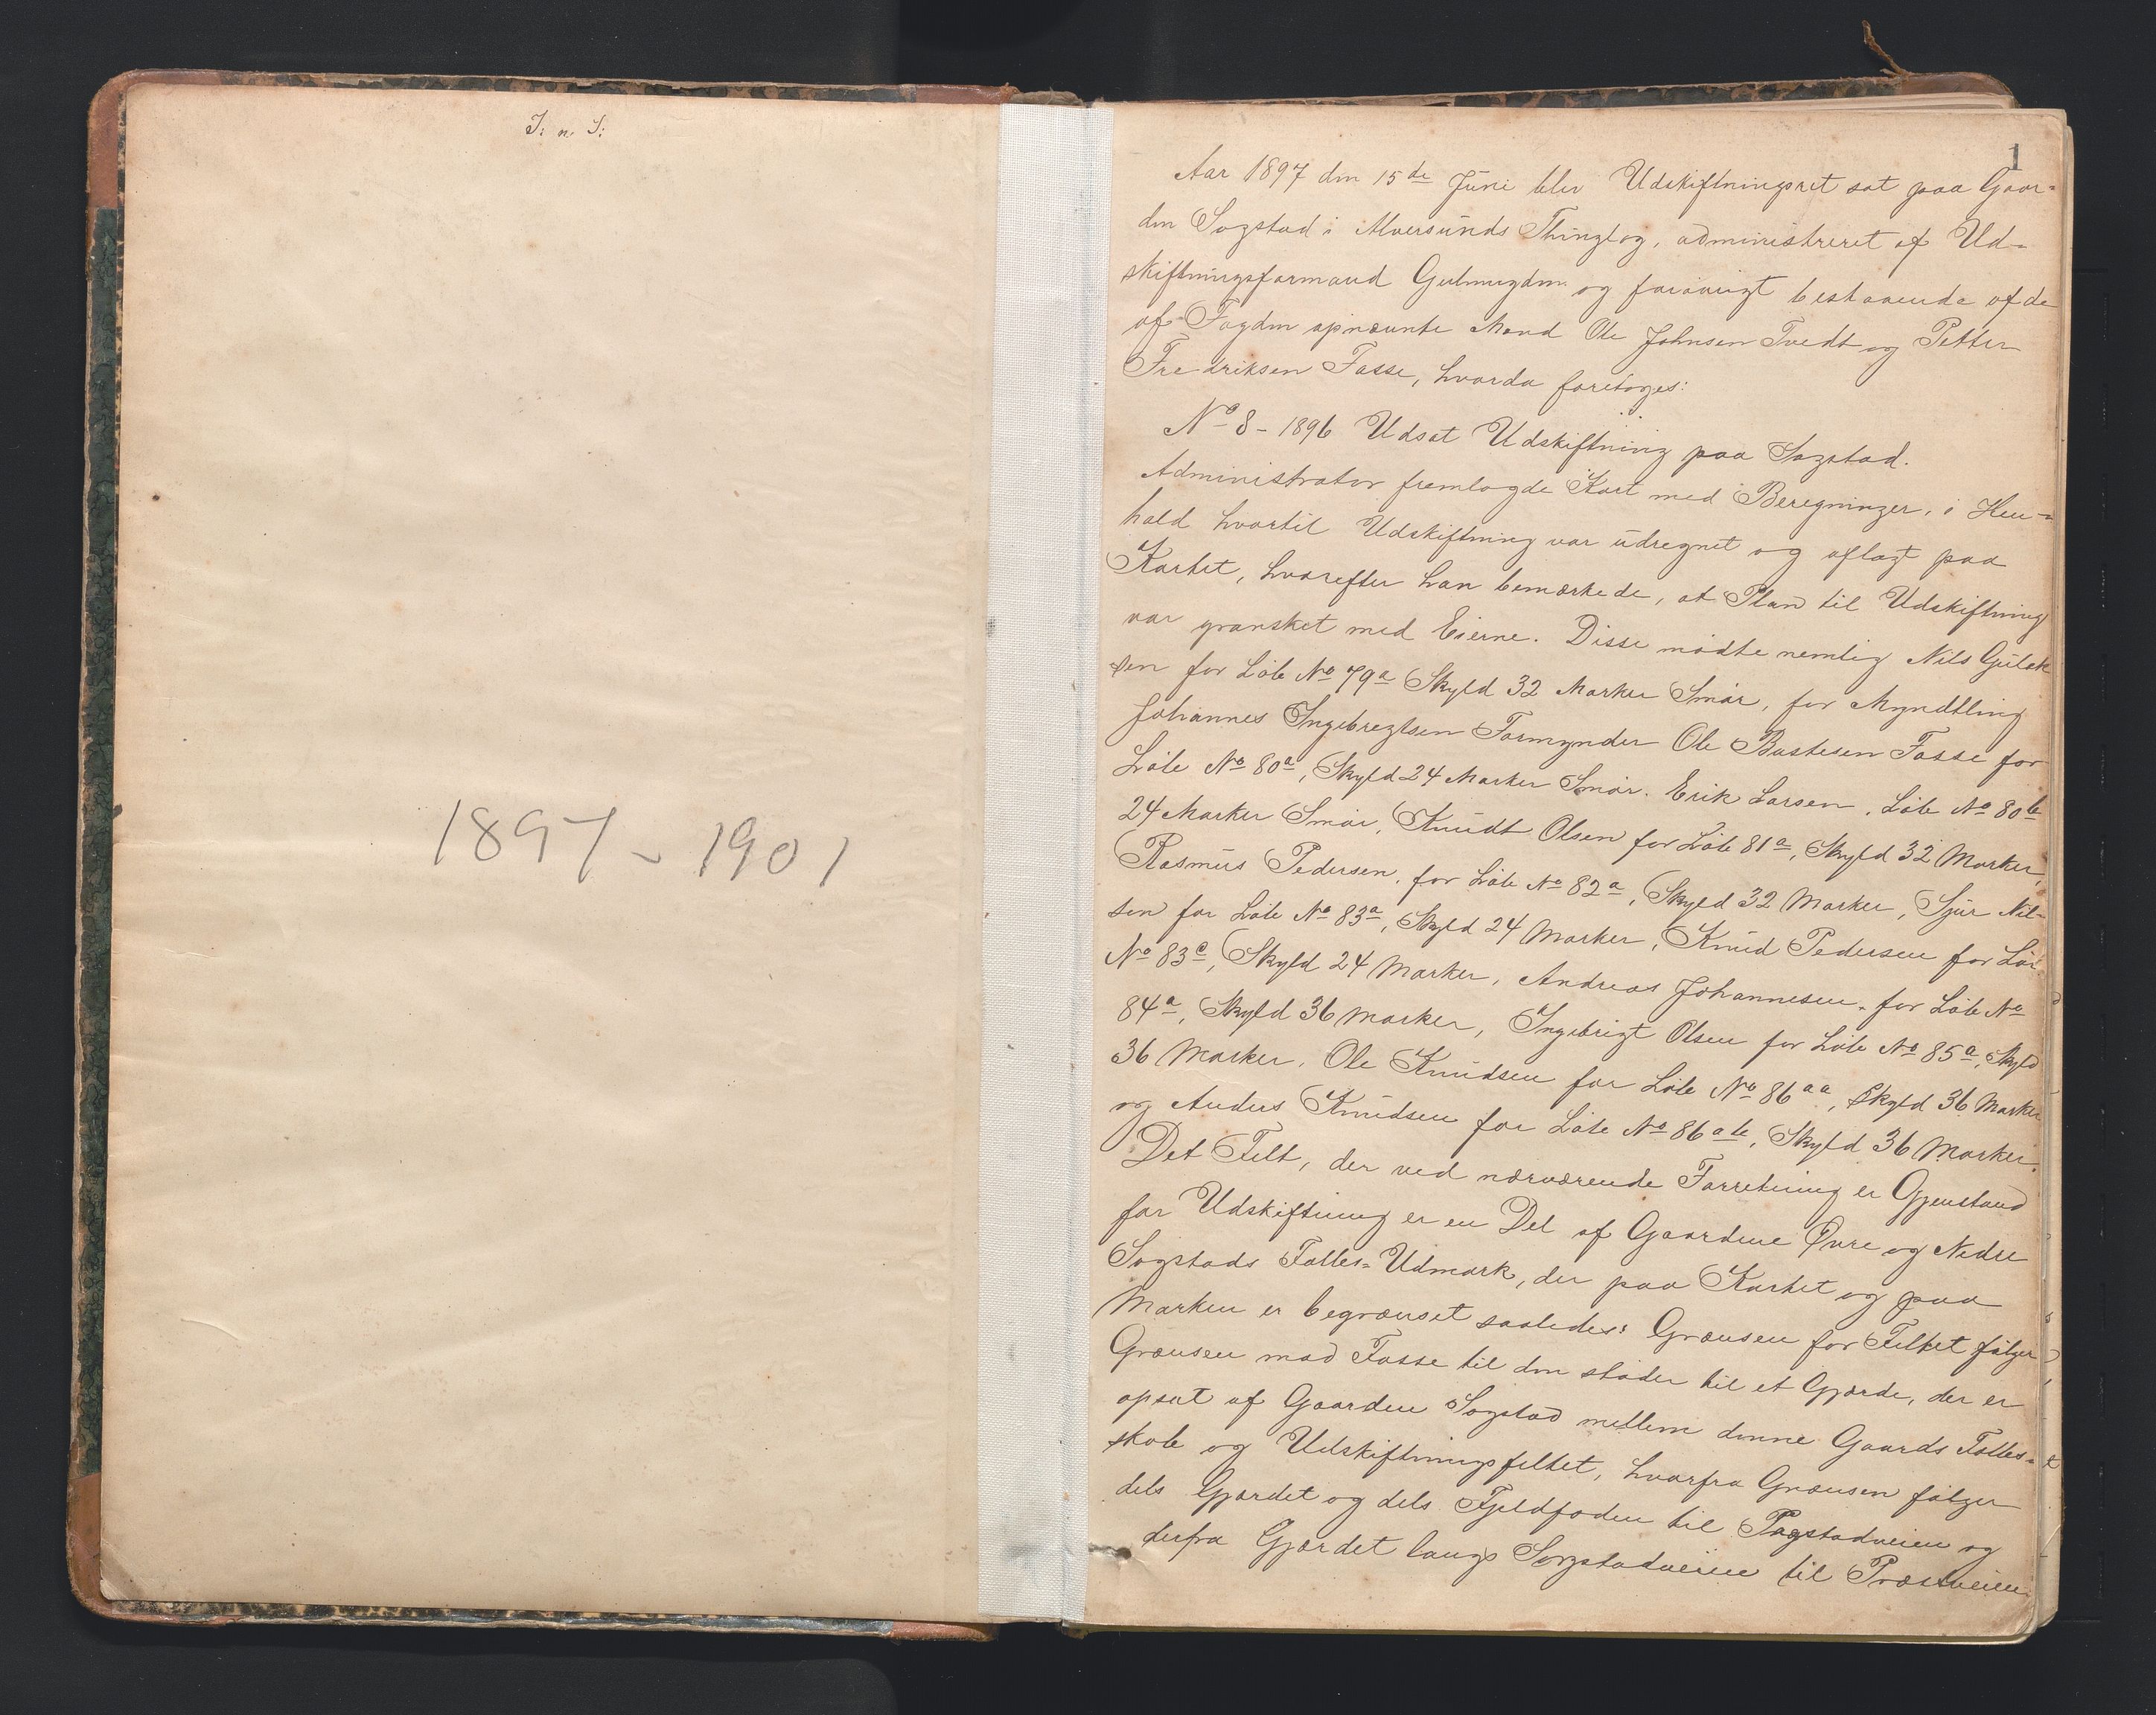 I: n S:
1897 - 1901
1
Aar 1897 den 15de Juni blev Udskiftningsret sat paa Gaar-
den Sogstad i Alversunds Thinglag, administreret af Ud-
skiftningsformand Gulmigdm og forøvrigt bestaaende af de
af Fogden opnævnte Mænd Ole Johnsen Tvedt og Petter
Fredriksen Fosse, hvorda foretoges:
No 8 - 1896 Udsat Udskiftning paa Sogstad.
Administrator fremlagde Kart med Beregninger, i Hen-
hold hvortil Udskiftning var udregnet og aflagt paa
Kartet, hvorefter han bemærkede, at Plan til Udskiftning
var gransket med Eierne. Disse mødte nemlig Nils Gulak
sen for Løbe No 79a Skyld 32 Marker Smør, for Myndtling
Johannes Ingebregtsen Formynder Ole Bastesen Fosse for
Løbe No 80a, Skyld 24 Marker Smør. Erik Larsen, Løbe No 80b
24 Marker Smør, Knudt Olsen for Løbe 81a, Skyld 32 Marker,
Rasmus Pedersen, for Løbe No 82a, Skyld 32 Marker, Sjur Nil-
sen for Løbe No 83a, Skyld 24 Marker, Knud Pedersen for Lø
No 83c, Skyld 24 Marker, Andreas Johannesen, for Løbe No
84a, Skyld 36 Marker, Ingebrigt Olsen for Løbe No 85a, Skyld
36 Marker, Ole Knudsen for Løbe No 86aa, Skyld 36 Marker
og Anders Knudsen for Løbe No 86ab, Skyld 36 Marker.
Det Felt, der ved nærværende Forretning er Gjenstand
for Udskiftning er en Del af Gaardene Øvre og Nedre
Sogstads Fælles-Udmark, der paa Kartet og paa
Marken er begrænset saaledes: Grænsen for Feltet følger
Grænsen mod Fosse til den støder til et Gjærde, der er
opsat af Gaarden Sogstad mellem denne Gaards Fælles-
skole og Udskiftningsfeltet, hvorfra Grænsen følger
dels Gjærdet og dels Fjeldfoden til Sogstadveien og
derfra Gjærdet langs Sogstadveien til Præstveien